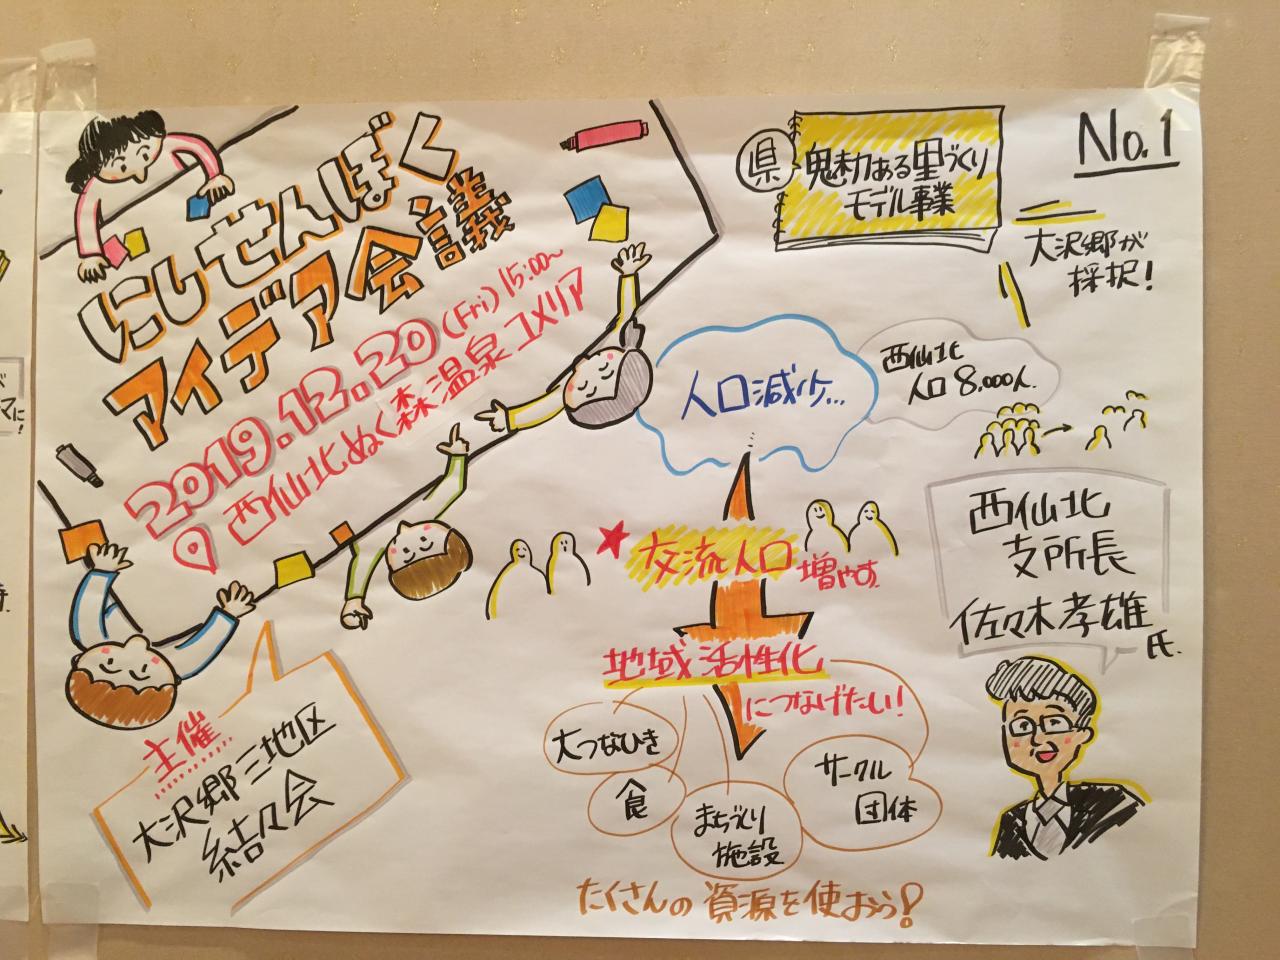 にしせんぼく
アイデア会議
2019.12.20(Fri)15:00~
西仙北ぬく森温泉ユメリア
主催
大沢郷三地区
結々会
No.1
県
魅力ある里づくり
モデル事業
大沢郷が
採択!
人口減少...
西仙北
人口8,000人.
交流人口
増やす.
地域活性化
につなげたい!
大つなひき
食
まちづくり
施設
サークル
団体
たくさんの資源を使おう!
西仙北
支所長
佐々木孝雄
氏.
マに!